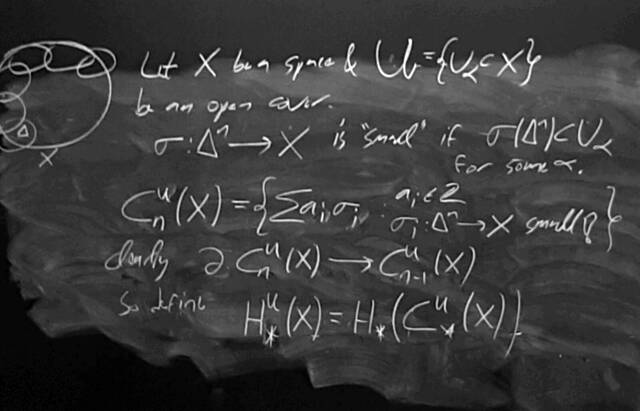 Let X be a space & U = {U_α ⊂ X}
be an open cover.
σ : Δⁿ → X is "small" if σ(Δⁿ) ⊂ U_α
for some α.
C_n^U(X) = { Σ a_i σ_i : a_i ∈ Z
σ_i : Δⁿ → X small }
clearly ∂ : C_n^U(X) → C_{n-1}^U(X)
so define H_*^U(X) = H_*(C_*^U(X))
Δ
X